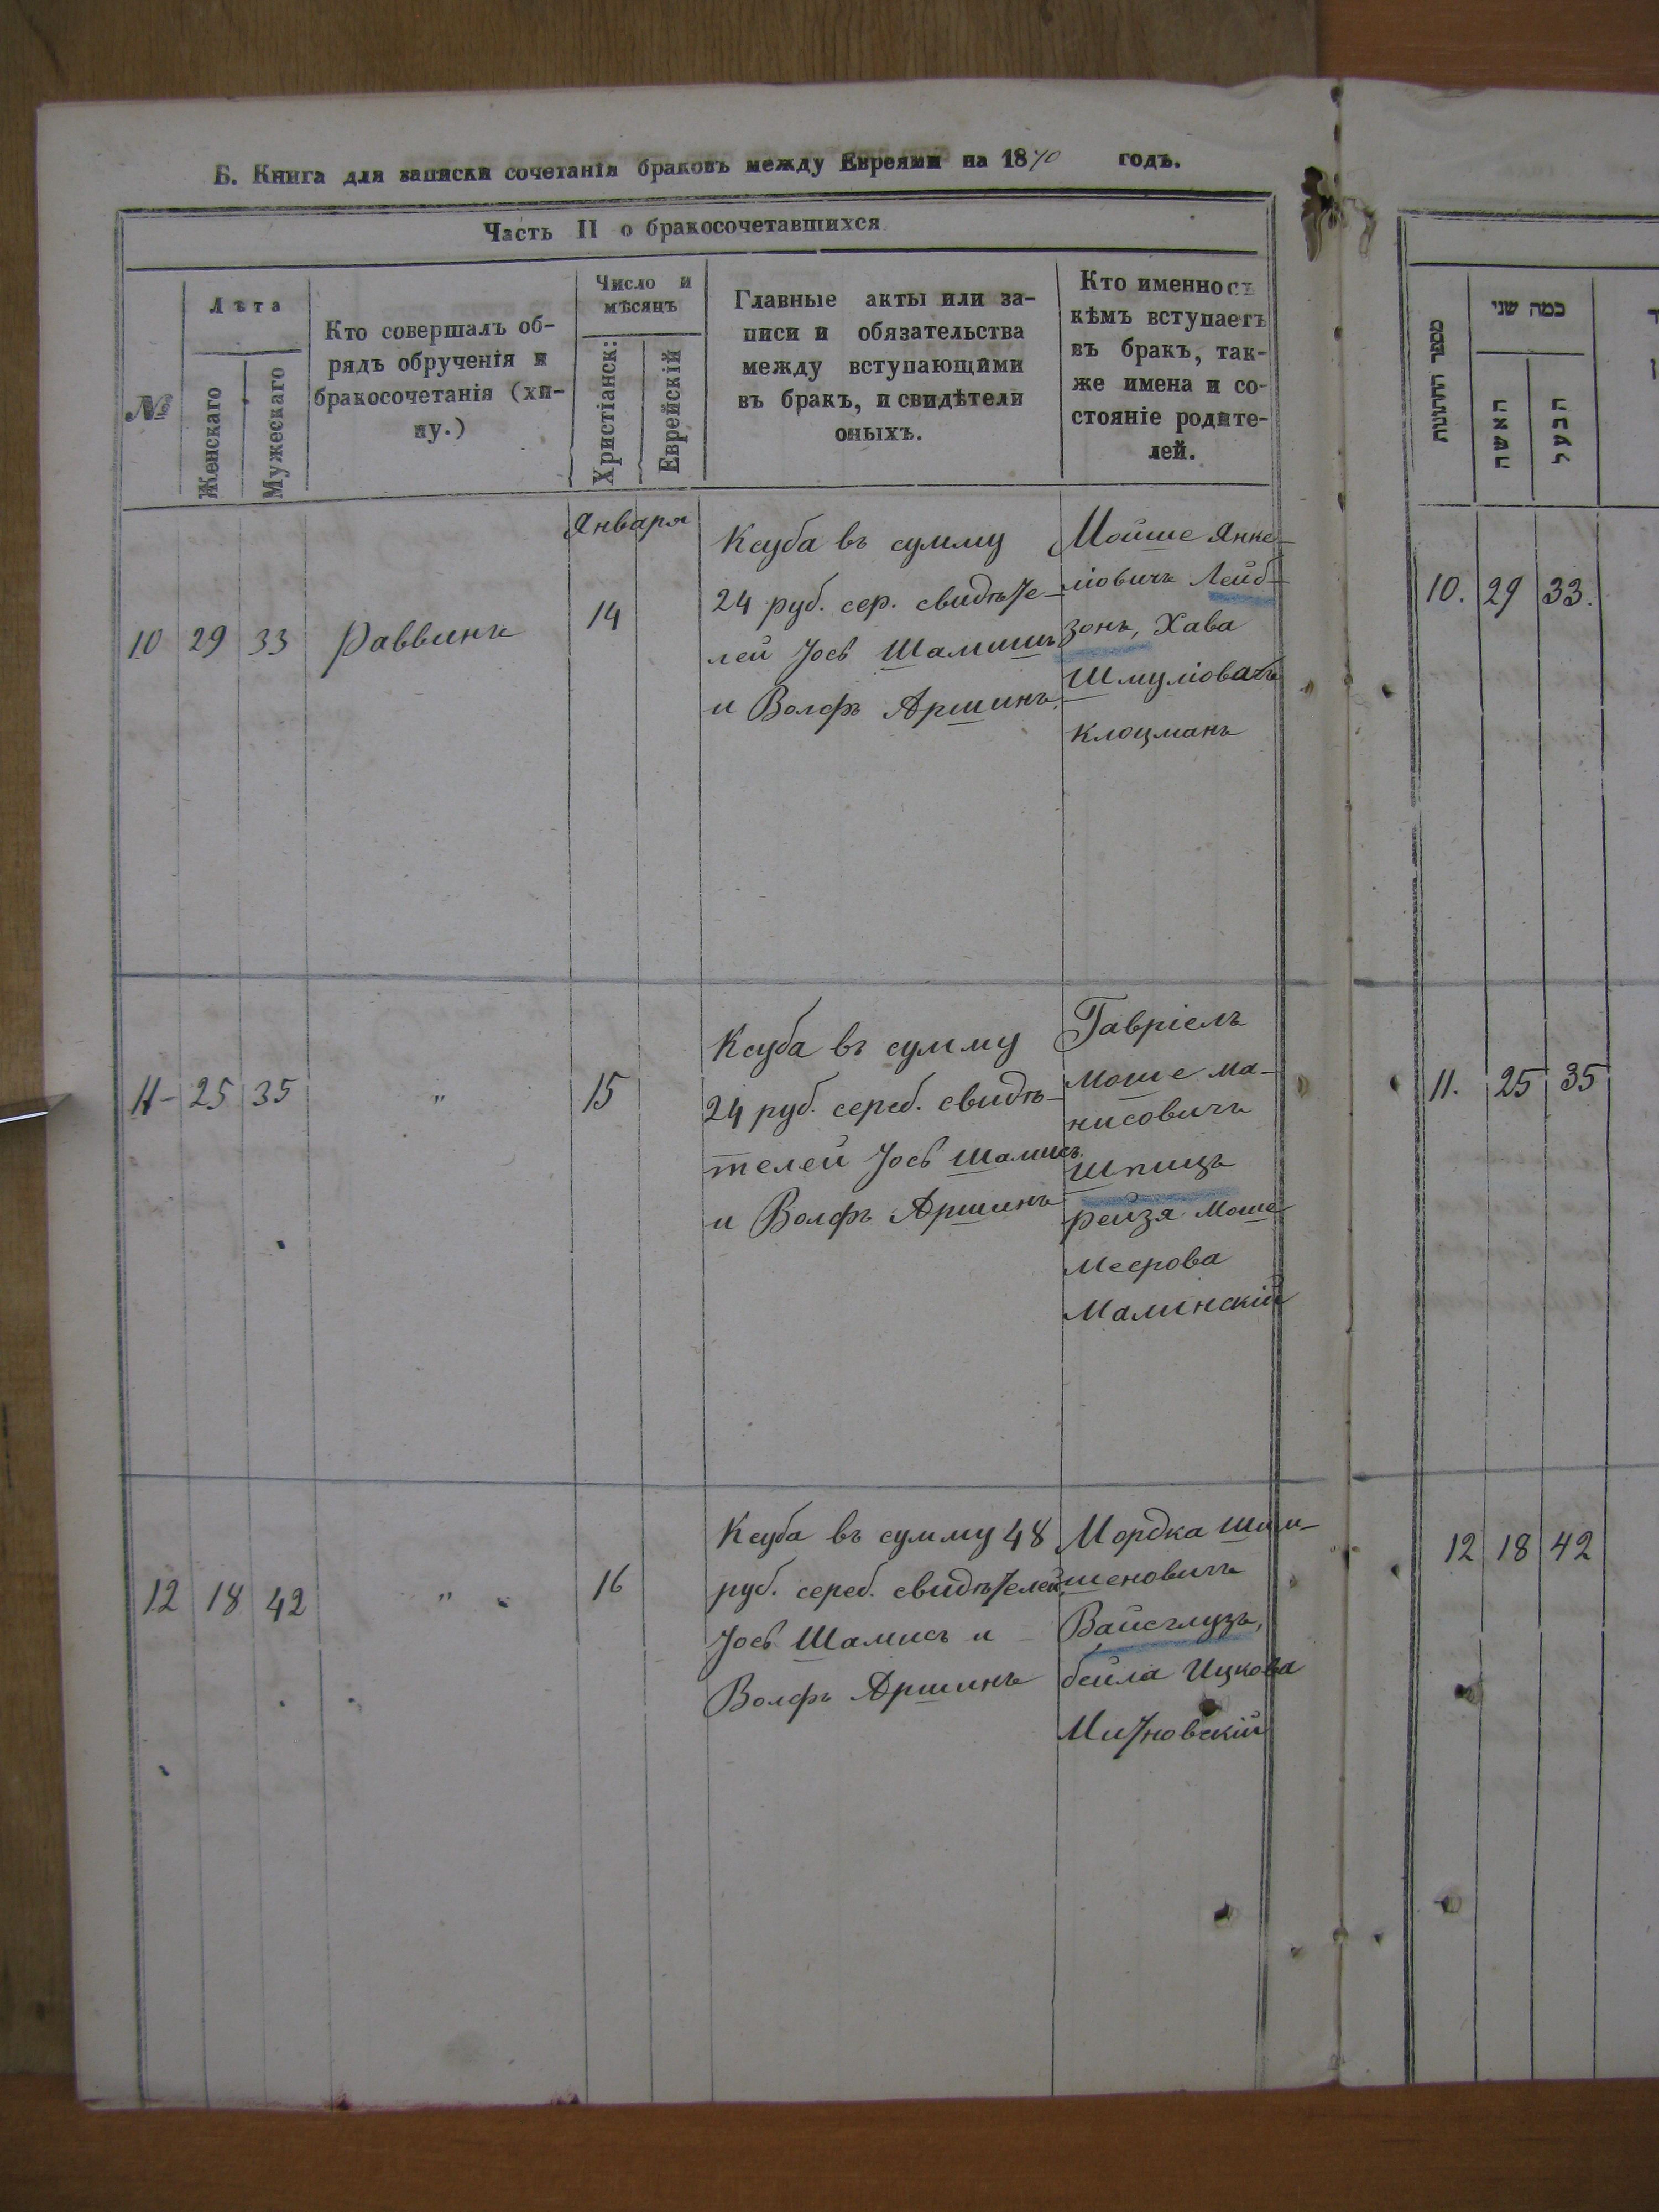 Б. Книга для записки сочетанія браковъ между Евреями на 1870 годъ.
Часть II о бракосочетавшихся
№
Лѣта
Женскаго
Мужескаго
Кто совершалъ об-
рядъ обрученія и
бракосочетанія (хи-
пу.)
Число и
мѣсяцъ
Христіанск:
Еврейскій
Главные акты или за-
писи и обязательства
между вступающими
въ бракъ, и свидѣтели
оныхъ.
Кто именно съ
кѣмъ вступаетъ
въ бракъ, так-
же имена и со-
стояніе родите-
лей.
מספר החתונות
כמה שני
האשה
הבעל
Января
10 29 33 Раввинъ 14
Ксуба въ сумму
24 руб. сер. свидѣте-
лей Іосъ Шамишъ
и Волфъ Аршинъ.
Мойше Янке-
ліовичъ Лейб-
зонъ, Хава
Шмуліовачъ
Клоцманъ
10. 29 33.
11- 25 35 " 15
Ксуба въ сумму
24 руб. сереб. свидѣ-
телей Іосъ Шамисъ
и Волфъ Аршинъ
Гавріелъ
Моше Ма-
нисовичъ
Шпицъ
Рейзя Моше
Меерова
Малинскій
11. 25 35
12 18 42 " 16
Ксуба въ сумму 48
руб. сереб. свидѣтелей
Іосъ Шамисъ и
Волфъ Аршинъ
Мордка Шим-
шеновичъ
Вайсглузъ,
бейла Ицкова
Митновскій
12 18 42